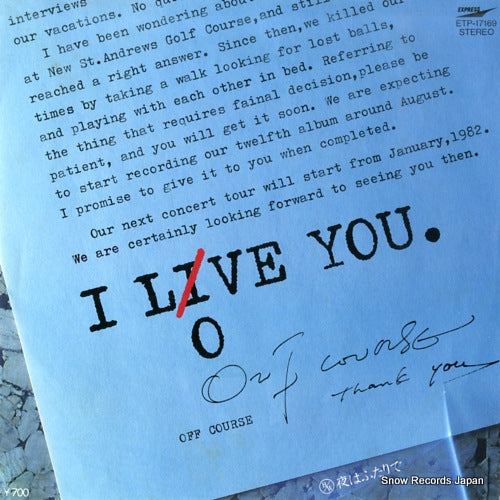 interviews
our vacations. No
I have been wondering about
at New St.Andrews Golf Course,and still
reached a right answer. Since then,we killed our
times by taking a walk looking for lost balls,
and playing with each other in bed. Referring to
the thing that requires fainal decision,please be
patient, and you will get it soon. We are expecting
to start recording our twelfth album around August.
I promise to give it to you when completed.
Our next concert tour will start from January,1982.
We are certainly looking forward to seeing you then.
I LIVE YOU.
O
OFF COURSE
Thank you
OFF COURSE
EXPRESS
ETP-17169
STEREO
¥700
B/W 夜はふたりで
Snow Records Japan